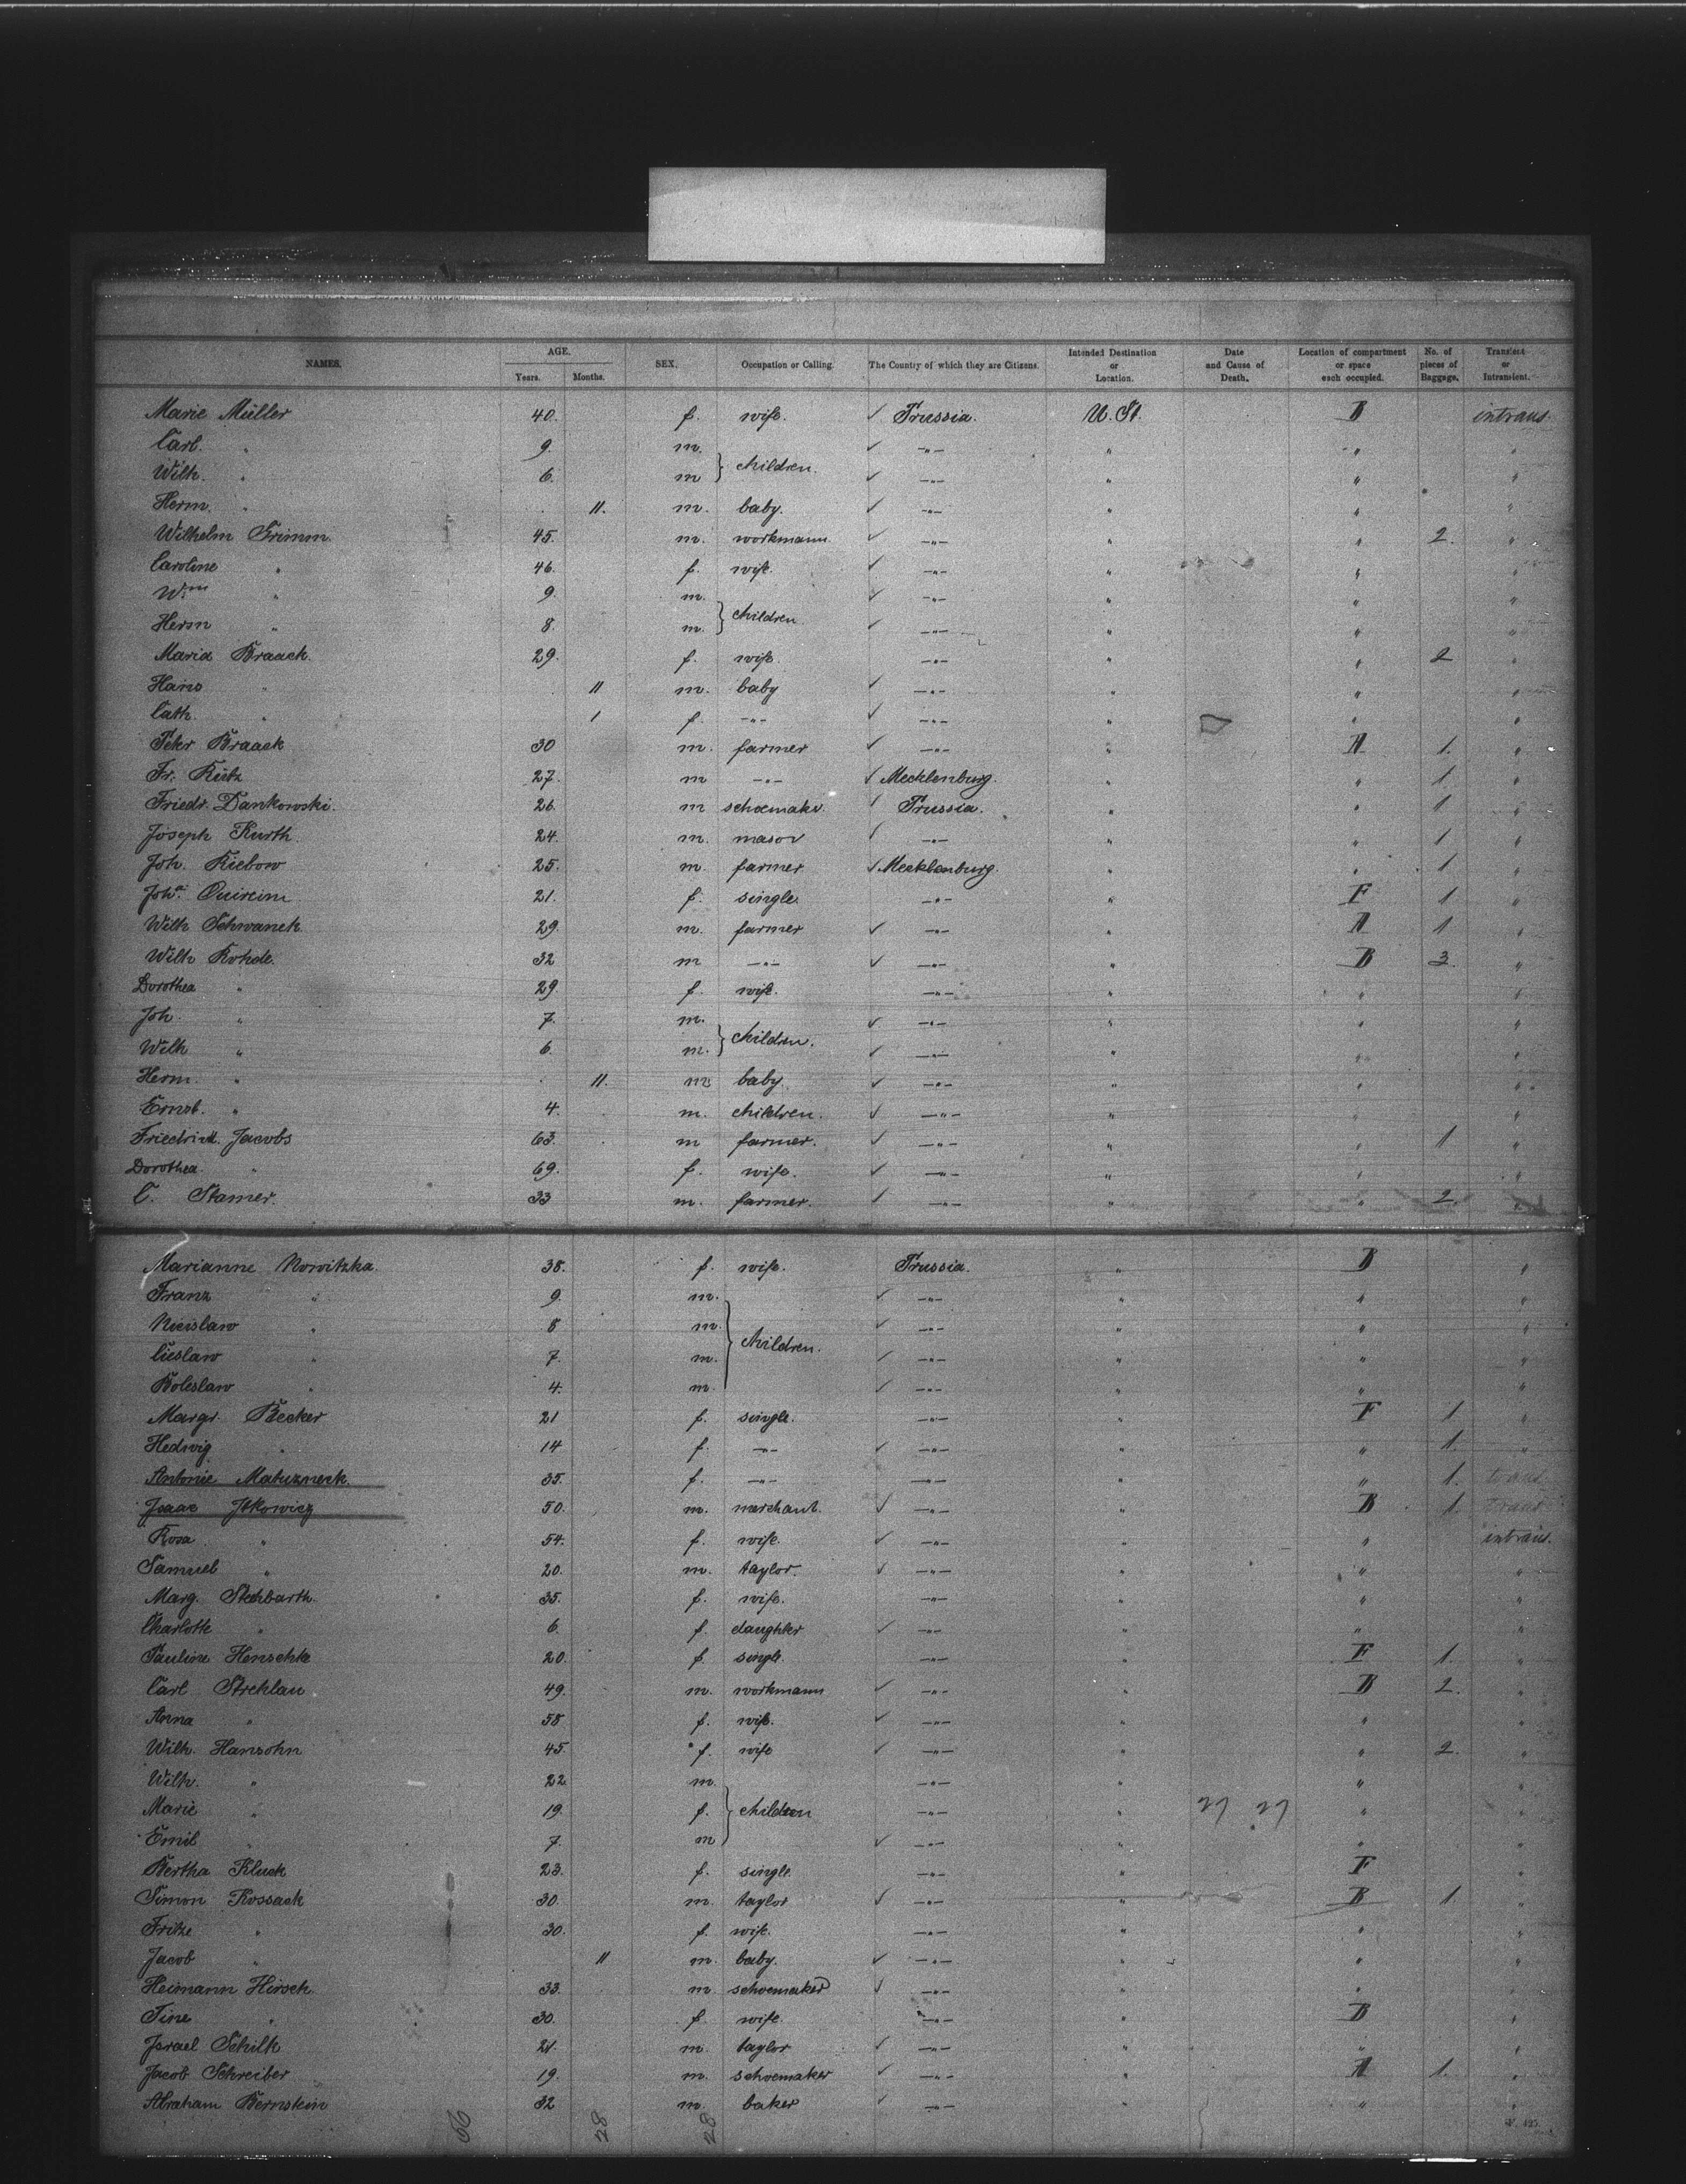 NAMES. AGE. Years. Months. SEX. Occupation or Calling. The Country of which they are Citizens. Intended Destination or Location. Date and Cause of Death. Location of compartment or space each occupied. No. of pieces of Baggage. Transient or Intransient.
Marie Müller 40. f. wife. ✓ Prussia. U. St. B intrans.
Carl. " 9. m. ✓ -"- " " "
Wilh. " 6. m } children. ✓ -"- " " "
Herm. " 11. m. baby. ✓ -"- " " "
Wilhelm Grimm. 45. m. workmann ✓ -"- " " 2. "
Caroline " 46. f. wife. ✓ -"- " " "
Wm " 9. m. ✓ -"- " " "
Herm " 8. m. } children ✓ -"- " " "
Maria Braack. 29. f. wife -"- " " 2 "
Hans " 11 m. baby ✓ -"- " " "
Cath. " 1 f. -"- ✓ -"- " " "
Peter Braack 30 m. farmer ✓ -"- " A 1. "
Fr. Kütz 27. m -"- ✓ Mecklenburg. " " 1 "
Friedr. Dankowski. 26. m schoemaker. ✓ Prussia. " " 1 "
Joseph Kurth. 24. m. mason ✓ -"- " " 1 "
Joh. Kiebow 25. m. farmer ✓ Mecklenburg. " " 1 "
Joha. 21. f. single. -"- " F 1 "
Wilh Schwanek. 29. m. farmer ✓ -"- " A 1 "
Wilh Rohde. 32 m -"- ✓ -"- " B 3. "
Dorothea " 29. f. wife. -"- " " "
Joh. " 7. m. ✓ -"- " " "
Wilh " 6. m. } children. ✓ -"- " " "
Herm. " 11. m baby. ✓ -"- " " "
Ernst. " 4. m. children. ✓ -"- " " "
Friedrich. Jacobs 63. m farmer. ✓ -"- " " 1 "
Dorothea. " 69. f. wife. ✓ -"- " " "
C. Stamer. 33 m. farmer. ✓ -"- " " 2. "
Marianne Nowitzka. 38. f. wife. Prussia. " B "
Franz " 9. m. ✓ -"- " " "
" 8 m. ✓ -"- " " "
Cieslaw " 7. m. } children. ✓ -"- " " "
Boleslaw " 4. m. ✓ -"- " " "
Margr. Becker 21 f. single. -"- " F 1 "
Hedwig. " 14 f. -"- ✓ -"- " " 1. "
Antonie Matuzneck. 35. f. -"- -"- " " 1. trans.
Isaac Itkowicz 50. m. merchant. ✓ -"- " B 1. trans
Rosa " 54. f. wife. ✓ -"- " " intrans.
Samuel " 20. m. taylor. ✓ -"- " " "
Marg. Stechbarth. 35. f. wife. -"- " " "
Charlotte " 6. f. daughter ✓ -"- " " "
Pauline Henschke 20. f. single. -"- " F 1. "
Carl Strehlau 49. m. workmann ✓ -"- " B 2. "
Anna " 58 f. wife. ✓ -"- " " "
Wilh. Hansohn 45. f. wife ✓ -"- " " 2. "
Wilh. " 22. m. -"- " " "
Marie " 19. f. } children -"- " " "
Emil " 7. m ✓ -"- " " "
Bertha Kluck 23. f. single. -"- " F "
Simon Kossack 30. m. taylor ✓ -"- " B 1. "
Fritze " 30. f. wife. -"- " " "
Jacob " 11 m. baby. ✓ -"- " " "
Heimann Hirsch. 33. m. schoemaker ✓ -"- " " "
Tine " 30. f. wife. -"- " B "
Israel Schilk 21. m. taylor ✓ -"- " " "
Jacob Schreiber 19. m. schoemaker ✓ -"- " A 1. "
Abraham Bernstein 32 m. baker ✓ -"- " " "
56 28 28